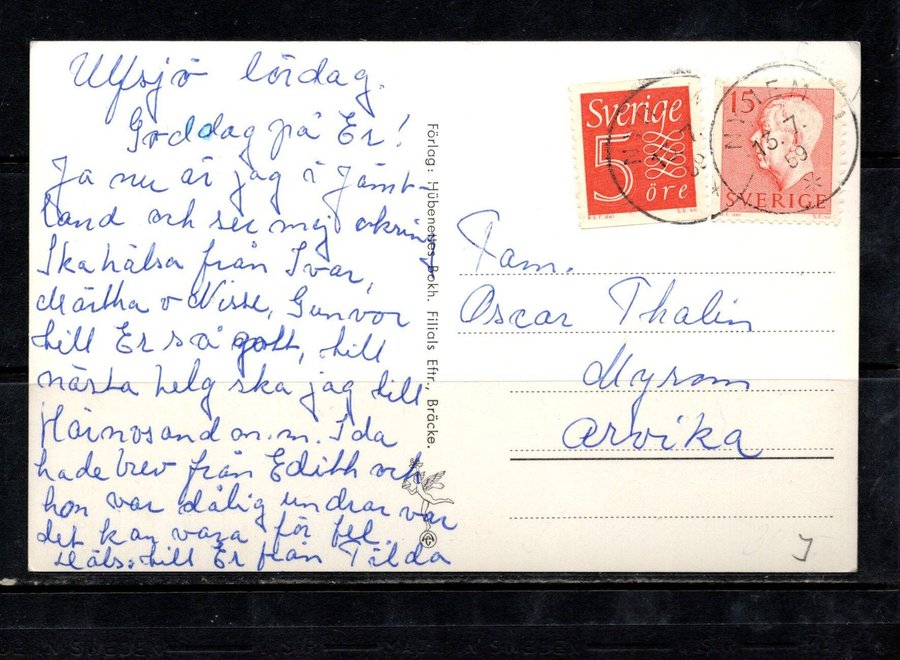 Ulfsjö lördag.
Goddag på Er!
Ja nu är jag i Jämt-
land och ser mig omkring
Ska hälsa från Ivar,
Märtha o Nisse, Gunvor
till Er så gott, till
nästa helg ska jag till
Härnosand m.m. Ida
hade brev från Edith och
hon var dålig undrar var
det kan vara för fel.
Häls. till Er från Tilda
Förlag: Hübenettes Bokh. Filials Eftr., Bräcke.
Sverige
5
öre
15
SVERIGE
13.7.
59
Fam.
Oscar Thalin
Myrom
Arvika